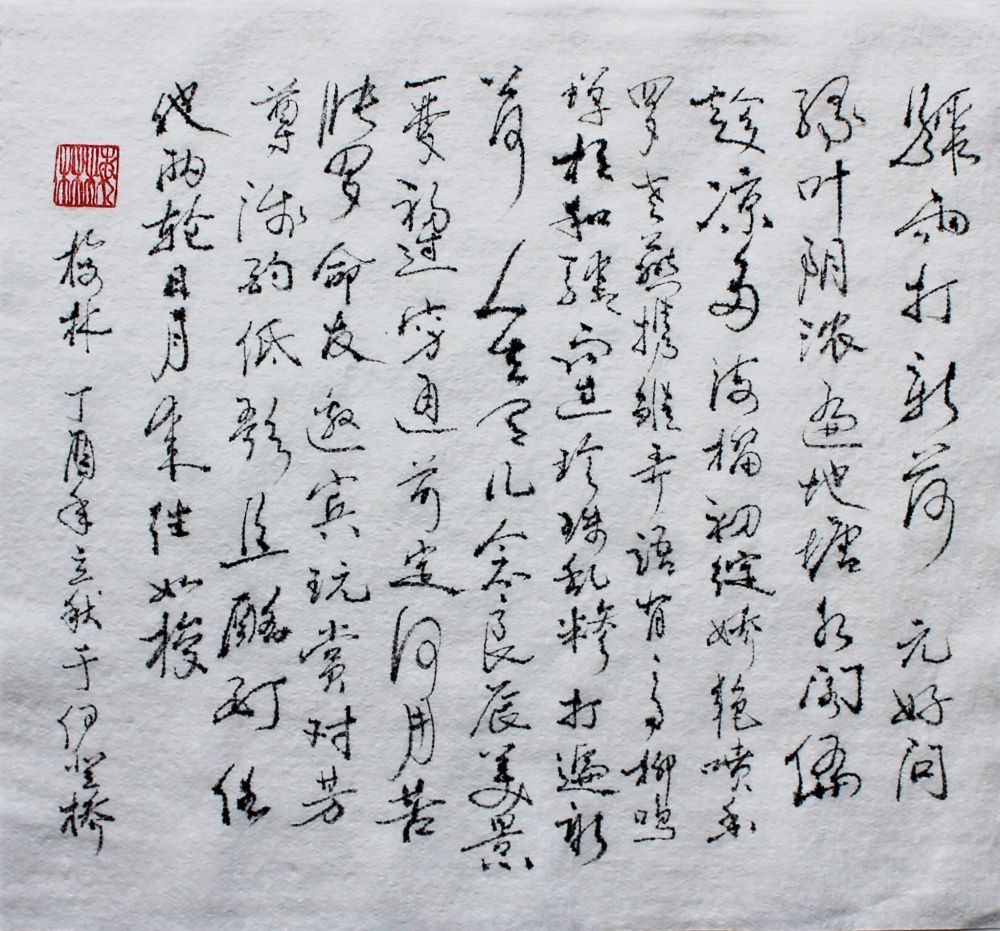 骤雨打新荷 元好问
绿叶阴浓遍池塘水阁偏
趁凉多海榴初绽娇艳喷香
罗老燕携雏弄语有高柳鸣
蝉相和骤雨过珍珠乱糁打遍新
荷 人生有几念良辰美景
一梦初过穷通前定何用苦
张罗命友邀宾玩赏对芳
尊浅酌低歌且酩酊任
他两轮日月来往如梭
梅林 丁酉年立秋于伊登桥